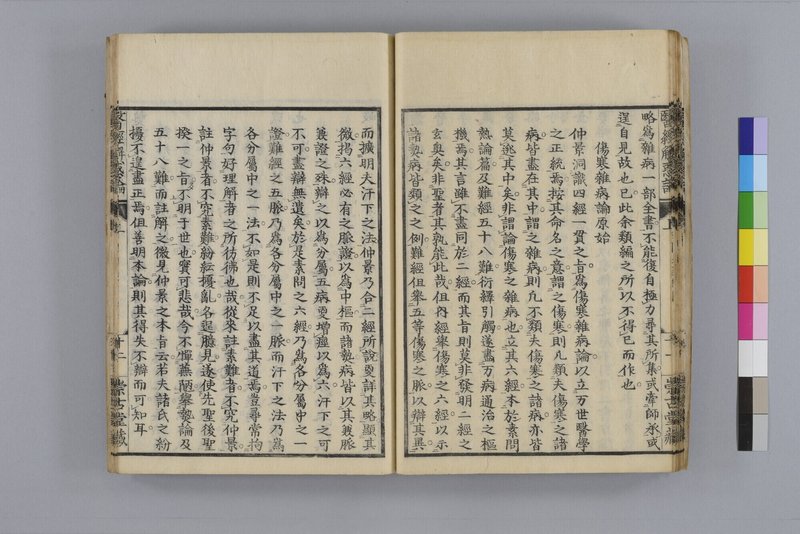 略爲雜病一部全書不能復自極力尋其所集或牽師承或
逞自見故也已此余類編之所以不得已而作也
傷寒雜病論原始
仲景洞識四經一貫之旨爲傷寒雜病論以立万世醫學
之正統焉按其命名之意謂之傷寒則凡類夫傷寒之諸
病皆盡在其中謂之雜病則凡不類夫傷寒之諸病亦皆
莫逃其中矣非謂論傷寒之雜病也立其六經本於素問
熱論篇及難經五十八難衍繹引觸遂盡万病通治之樞
機焉其言雖不盡同於二經而其旨則莫非發明二經之
玄奥矣非聖者其孰能此哉但內經舉傷寒之六經以示
諸熱病皆類之之例難經但舉五等傷寒之脈以辯其異
而擴明夫汗下之法仲景乃合二經所說更詳其略顯其
微揭六經必有之脈證以爲中樞而諸熱病皆以其兼脈
兼證之殊辯之以爲分屬五病更增瘟以爲六汗下之可
不可盡辯無遺矣於是素問之六經乃爲各分屬中之一
證難經之五脈乃爲各分屬中之一脈而汗下之法乃爲
各分屬中之一法不如是則不足以盡其道焉豈尋常拘
字句好理解者之所彷彿也哉從來註素難者不究仲景
註仲景者不究素難紛紜擾亂各逞臆見遂使先聖後聖
揆一之旨不明于世也寔可悲哉今不憚蕪陋舉熱論及
五十八難而註解之微見仲景之本旨云若夫諸氏之紛
擾不遑盡正焉但善明本論則其得失不辯而可知耳
崇古堂藏